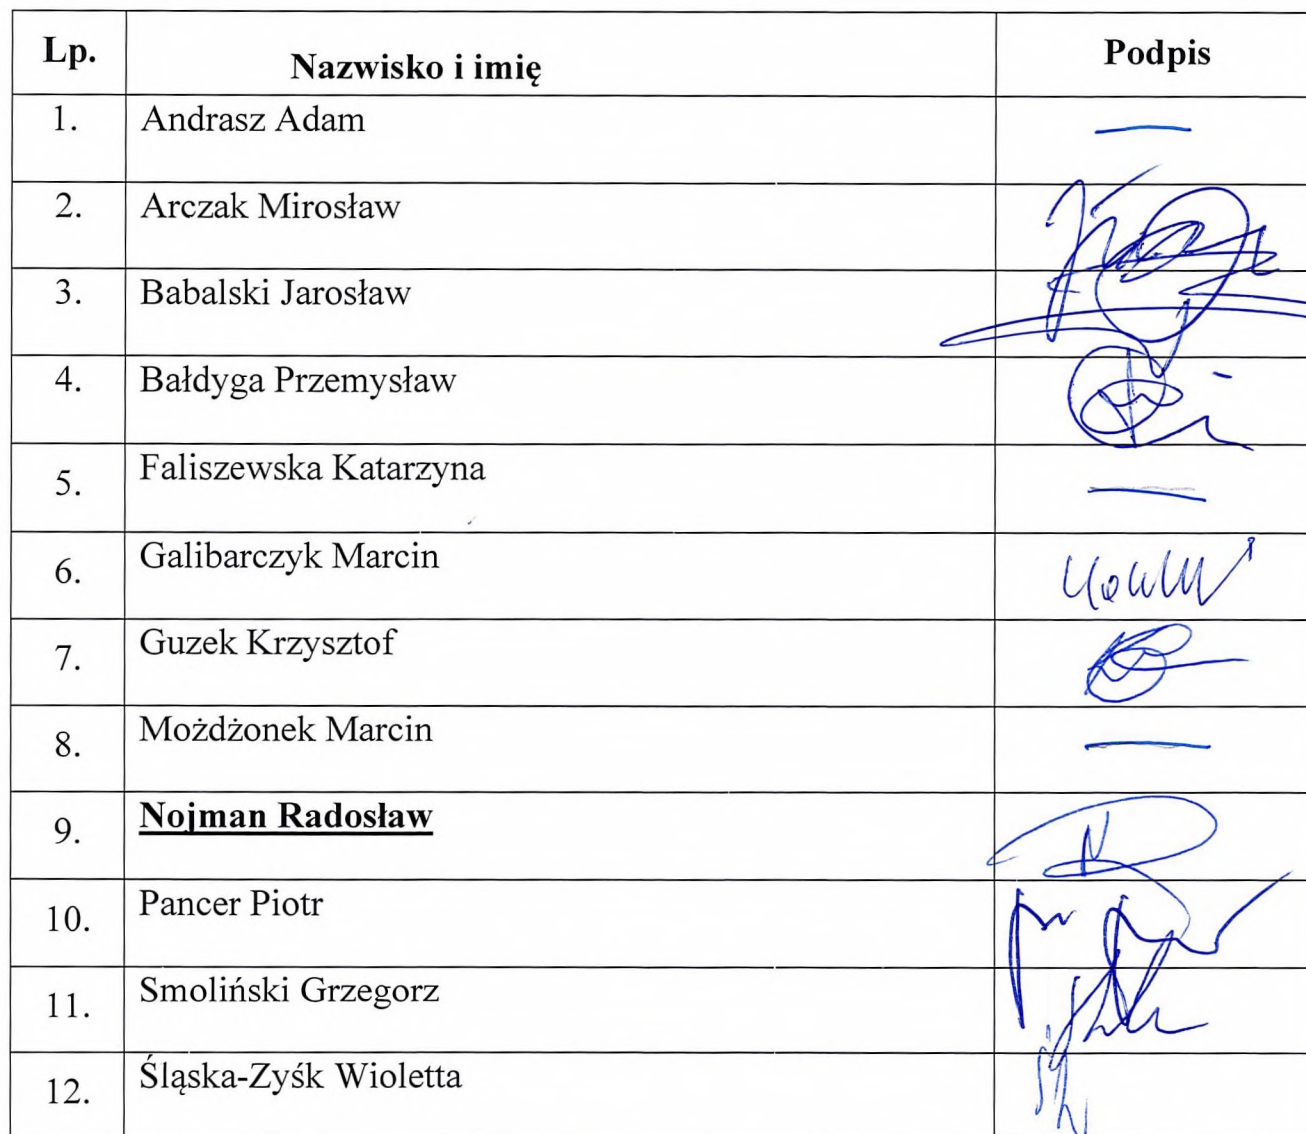 Lp. Nazwisko i imię Podpis
1. Andrasz Adam —
2. Arczak Mirosław
3. Babalski Jarosław
4. Bałdyga Przemysław
5. Faliszewska Katarzyna —
6. Galibarczyk Marcin
7. Guzek Krzysztof
8. Możdżonek Marcin —
9. Nojman Radosław
10. Pancer Piotr
11. Smoliński Grzegorz
12. Śląska-Zyśk Wioletta